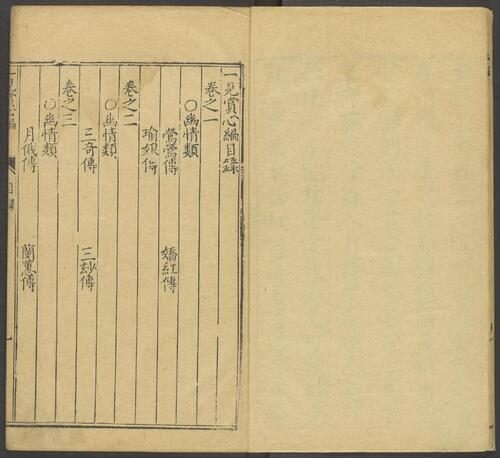 一見賞心編目錄
卷之一
〇幽情類
鶯鶯傳
嬌紅傳
瑜娘傳
卷之二
〇幽情類
三奇傳
三妙傳
卷之三
〇幽情類
月娥傳
蘭蕙傳
目錄
一